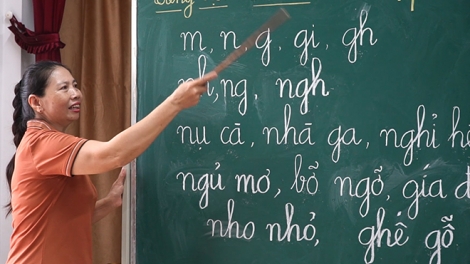 m, n, g, gi, gh
nh, ng, ngh
nụ cà, nhà ga, nghỉ
ngủ mơ, bỡ ngỡ, giá
nho nhỏ, ghế gỗ